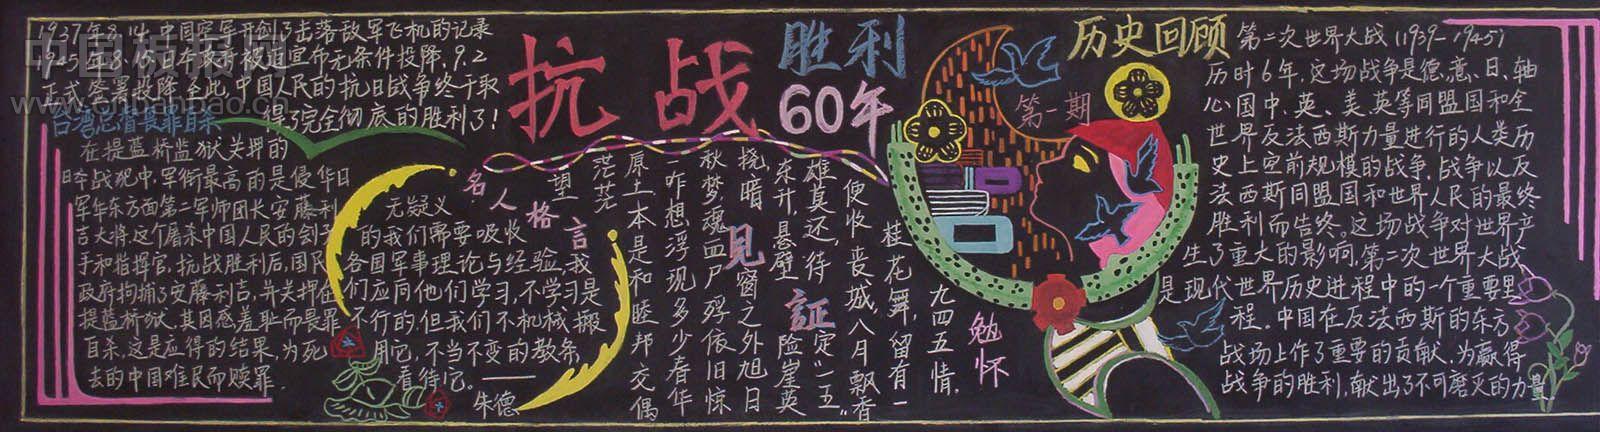 1937年8.14.中国空军开创了击落敌军飞机的记录
1945年8.15.日本政府被迫宣布无条件投降,9.2
正式签署投降.至此,中国人民的抗日战争终于取
得了完全彻底的胜利了!
中国板报网
www.cnbanbao.cn
台湾总督畏罪自杀
在提蓝桥监狱关押的
日本战犯中,军衔最高的是侵华日
军华东方面第二军师团长安藤利
吉大将.这个屠杀中国人民的刽子
手和指挥官,抗战胜利后,国民
政府拘捕了安藤利吉,并关押在
提蓝桥狱.其因感羞耻而畏罪
自杀,这是应得的结果,为死
去的中国难民而赎罪.
抗战
胜利
60年
名人格言
无疑义
的我们需要吸收
各国军事理论与经验,我
们应向他们学习,不学习是
不行的.但我们不机械搬
用它,不当不变的教条
看待它。——
朱德
见证
勉怀
一九四五情,
桂花舞,留有一
便收丧城,八月飘香
雄莫还,待证定"一五"
东升,悬壁险崖英
挠暗见窗之外旭日
秋梦,魂血尸殍依旧惊
咋想浮现多少春华
原土本是和睦邦交偶
望茫茫
历史回顾
第一期
第二次世界大战(1939-1945)
历时6年,这场战争是德、意、日、轴
心国中、英、美、英等同盟国和全
世界反法西斯力量进行的人类历
史上空前规模的战争,战争以反
法西斯同盟国和世界人民的最终
胜利而告终。这场战争对世界产
生了重大的影响,第二次世界大战
是现代世界历史进程中的一个重要里
程.中国在反法西斯的东方
战场上作了重要的贡献,为赢得
战争的胜利,献出了不可磨灭的力量.